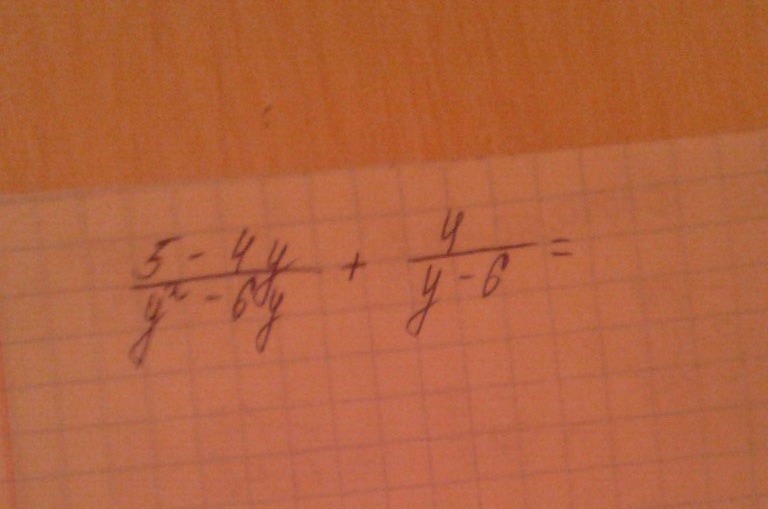 \frac{5 - 4y}{y^2 - 6y} + \frac{4}{y - 6} =